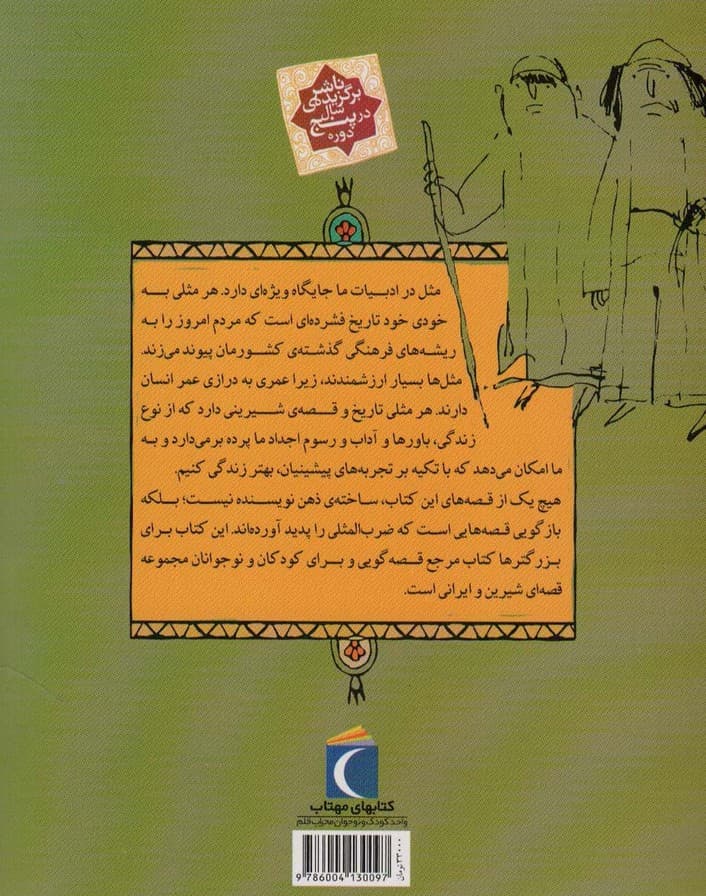 ناشر
برگزیده‌ی
سال
در پنج
دوره
مثل در ادبیات ما جایگاه ویژه‌ای دارد. هر مثلی به
خودی خود تاریخ فشرده‌ای است که مردم امروز را به
ریشه‌های فرهنگی گذشته‌ی کشورمان پیوند می‌زند.
مثل‌ها بسیار ارزشمندند، زیرا عمری به درازی عمر انسان
دارند. هر مثلی تاریخ و قصه‌ی شیرینی دارد که از نوع
زندگی، باورها و آداب و رسوم اجداد ما پرده برمی‌دارد و به
ما امکان می‌دهد که با تکیه بر تجربه‌های پیشینیان، بهتر زندگی کنیم.
هیچ یک از قصه‌های این کتاب، ساخته‌ی ذهن نویسنده نیست؛ بلکه
بازگویی قصه‌هایی است که ضرب‌المثلی را پدید آورده‌اند. این کتاب برای
بزرگترها کتاب مرجع قصه‌گویی و برای کودکان و نوجوانان مجموعه
قصه‌ای شیرین و ایرانی است.
کتابهای مهتاب
واحد کودک و نوجوان محراب قلم
۲۳۰۰۰ تومان
9 786004 130097